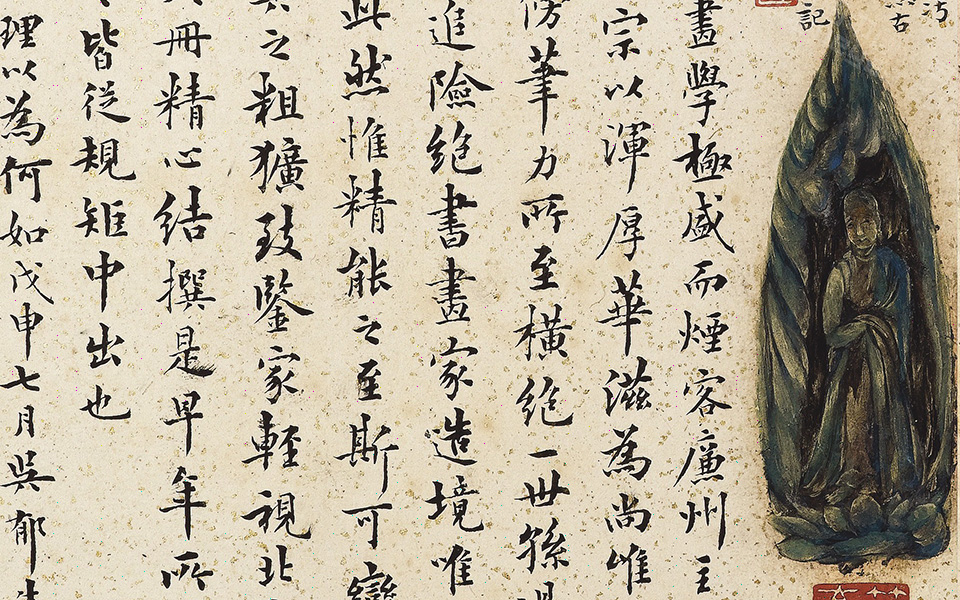 古
記
畫學極盛而煙客廉州主
宗以渾厚華滋為尚惟
筆力所至橫絕一世
進險絕書畫家造境唯
此然惟精能之至斯可變
之粗獷致鑒家輕視北
冊精心結撰是早年所
皆從規矩中出也
理以為何如戊申七月吳郁